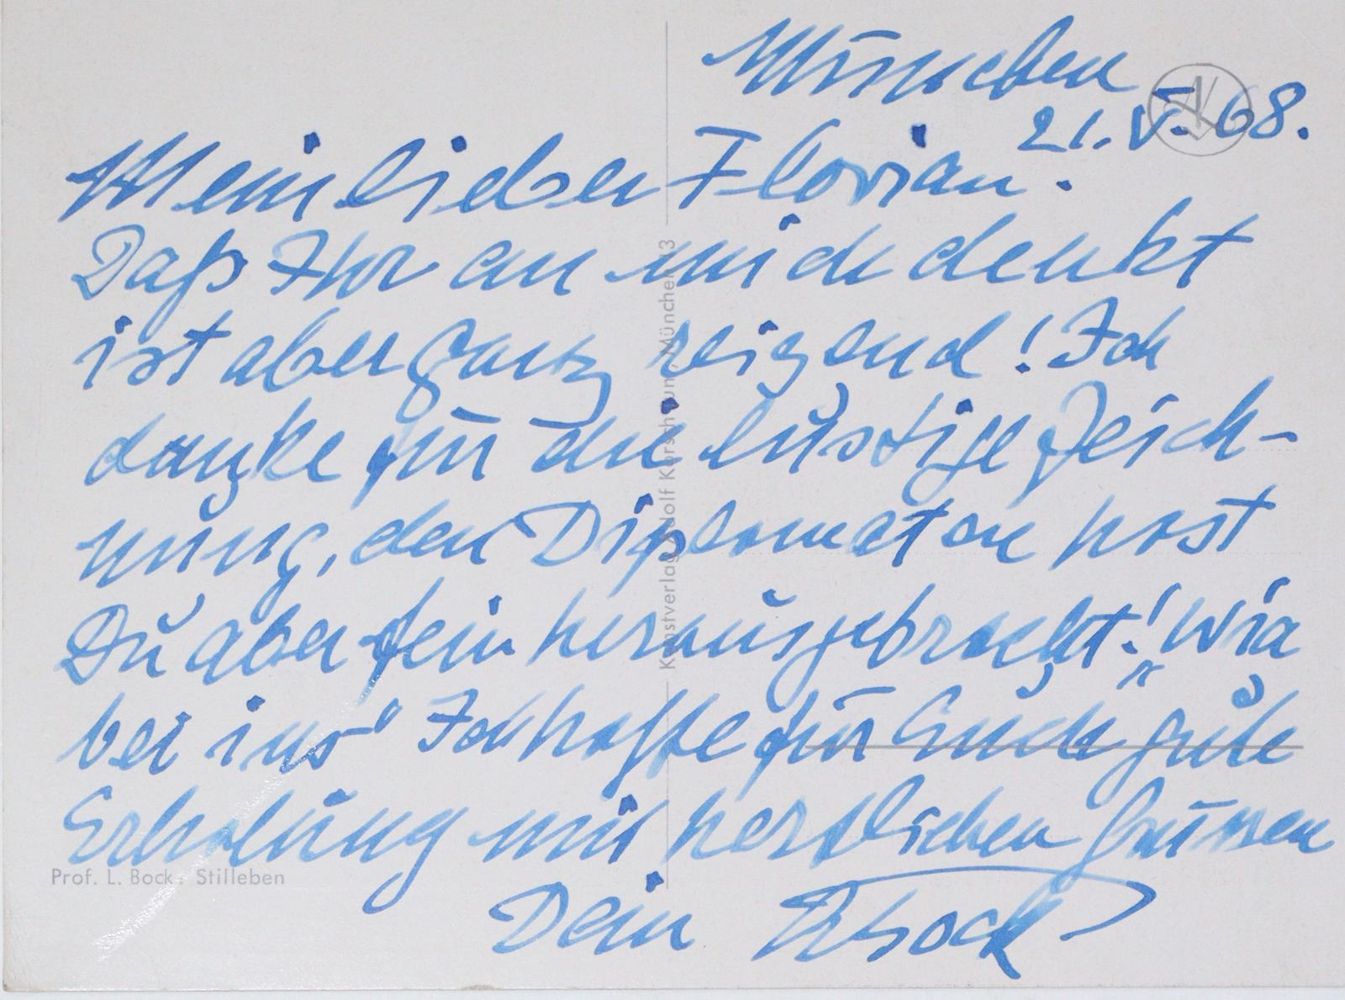 München
21. V. 68.
Mein lieber Florian.
Daß Ihr an mich denkt
ist aber ganz reizend! Ich
danke für die lustige Zeich-
nung, den Diplomaten hast
Du aber fein herausgebracht! „Wia
bei ins“ Ich hoffe für Euch gute
Erholung mit herzlichen Grüssen
Dein Bock
Prof. L. Bock: Stilleben
Kunstverlag Adolf Korsch München 13